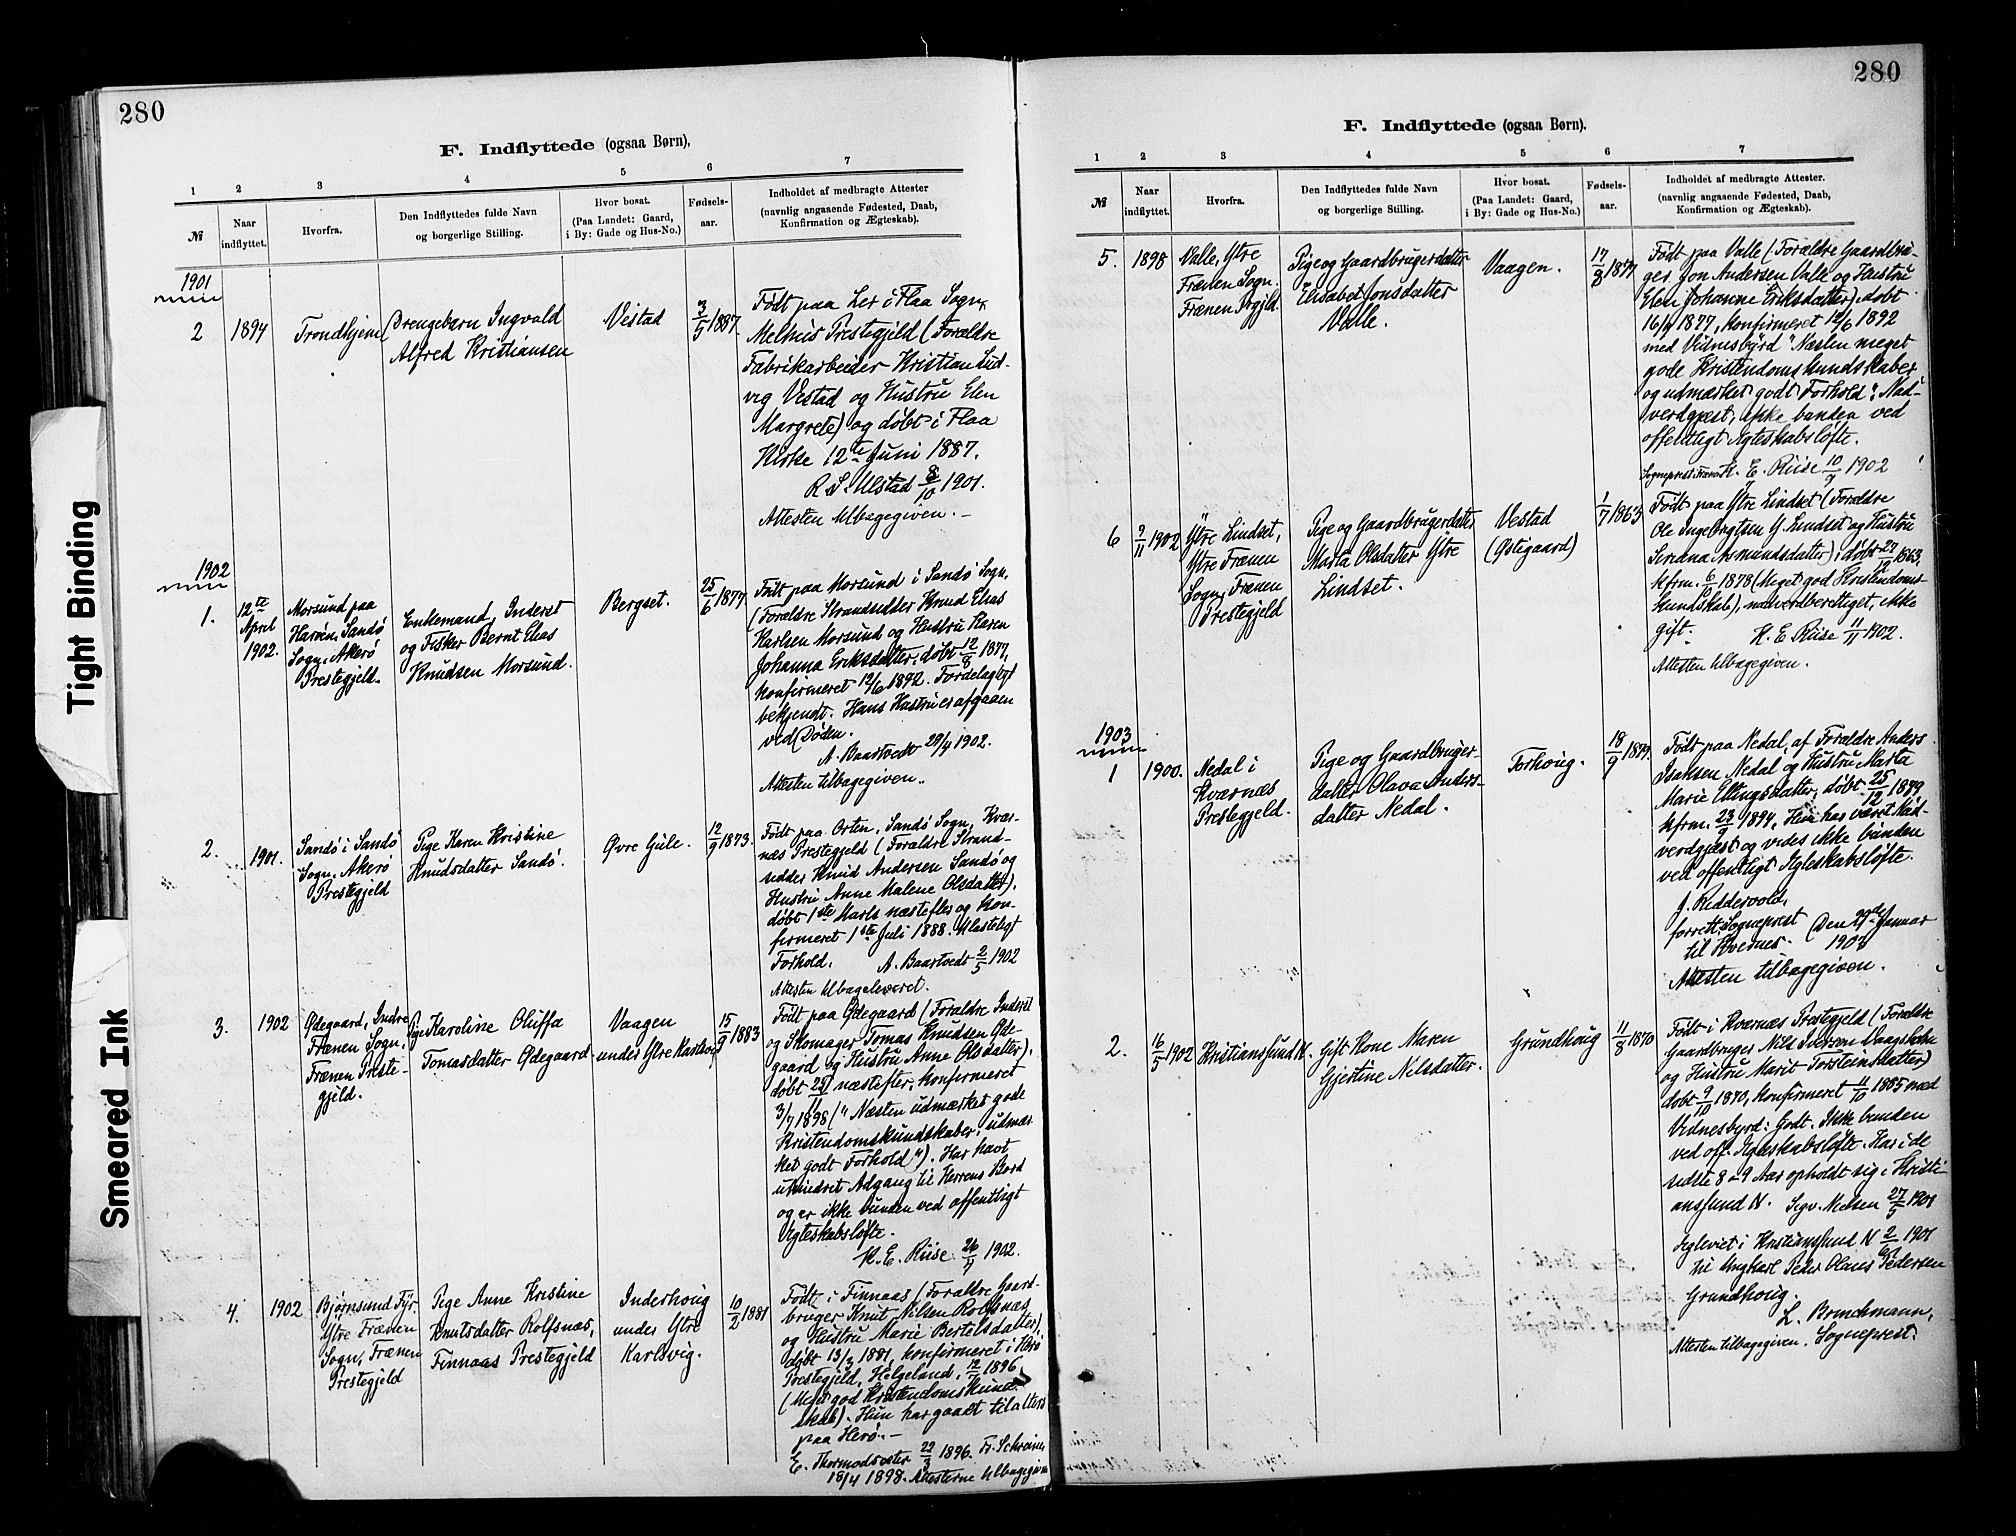 280
F. Indflyttede (ogsaa Børn).
1 2 3 4 5 6 7
№
Naar indflyttet.
Hvorfra.
Den Indflyttedes fulde Navn
og borgerlige Stilling.
Hvor bosat.
(Paa Landet: Gaard,
i By: Gade og Hus-No.)
Fødsels-
aar.
Indholdet af medbragte Attester
(navnlig angaaende Fødested, Daab,
Konfirmation og Ægteskab).
1901
2
1894
Trondhjem
Drengebarn Ingvald
Alfred Kristiansen
Vestad
3/5 1887
Født paa Ler i Flaa Sogn,
Melhus Prestegjeld (Forældre
Fabrikarbeider Kristian Lud-
vig Vestad og Hustru Elen
Margrete) og døbt i Flaa
Kirke 12te Juni 1887.
R. S. Ulstad 8/10 1901.
Attesten tilbagegiven. –
1902
1.
12te
April
1902.
Morsund paa
Harøen, Sandø
Sogn, Akerø
Prestegjeld.
Enkemand, Inderst
og Fisker Bernt Elias
Knudsen Morsund.
Bergset.
25/6 1877
Født paa Morsund i Sandø Sogn,
(Forældre Strandsidder Knud Elias
Karlsen Morsund og Hustru Karen
Johanna Eriksdatter, døbt 12/8 1877,
konfirmeret 12/6 1892. Fordelagtigt
bekjendt. Hans Hustru er afgaaen
ved Døden.
A. Baartvedt 29/4 1902.
Attesten tilbagegiven.
2.
1901.
Sandø i Sandø
Sogn, Akerø
Prestegjeld
Pige Karen Kristine
Knudsdatter Sandø.
Øvre Gule.
12/9 1873
Født paa Orten, Sandø Sogn, Kvær-
næs Prestegjeld (Forældre Strand-
sidder Knud Andersen Sandø og
Hustru Anne Malene Olsdatter).
døbt 1ste Marts næstefter og kon-
firmeret 1ste Juli 1888. Ulasteligt
Forhold. A. Baartvedt 2/5 1902
Attesten tilbageleveret.
3.
1902
Ødegaard, Indre
Frænen Sogn,
Frænen Preste-
gjeld.
Pige Karoline Oluffa
Tomasdatter Ødegaard
Vaagen
under Ytre Karlsvig
15/9 1883
Født paa Ødegaard (Forældre Inderst
og Skomager Tomas Knudsen Øde-
gaard og Hustru Anne Olsdatter).
døbt 25/11 næstefter, konfirmeret
3/7 1898 ("Næsten udmærket gode
Kristendomskundskaber, udmær-
ket godt Forhold"). Har havt
uhindret Adgang til Herrens Bord
og er ikke bunden ved offentligt
Ægteskabsløfte.
K. E. Riise 26/4 1902.
4.
1902
Bjørnsund Fyr,
Ytre Frænen
Sogn, Frænen
Prestegjeld
Pige Anne Kristine
Knutsdatter Rolfsnæs,
Finnaas Prestegjeld
Inderhoug
under Ytre
Karlsvig.
10/2 1881
Født i Finnaas (Forældre Gaard-
bruger Knut Nilsen Rolfsnæs
og Hustru Marie Bertelsdatter),
døbt 13/3 1881, konfirmeret i Herø
Prestegjeld, Helgeland, 12/7 1896
(Meget god Kristendomskund-
skab). Hun har gaaet til alters
paa Herø. –
E. Thormodsæter 22/9 1896. Fr. Schreiner
18/4 1898. Attesterne tilbagegivne
280
F. Indflyttede (ogsaa Børn).
1 2 3 4 5 6 7
№
Naar
indflyttet.
Hvorfra.
Den Indflyttedes fulde Navn
og borgerlige Stilling.
Hvor bosat.
(Paa Landet: Gaard,
i By: Gade og Hus-No.)
Fødsels-
aar.
Indholdet af medbragte Attester.
(navnlig angaaende Fødested, Daab,
Konfirmation og Ægteskab).
5.
1898
Valle, Ytre
Frænen Sogn.
Frænen Prgjld.
Pige og Gaardbrugerdatter
Elisabet Jonsdatter
Valle.
Vaagen.
17/8 1877
Født paa Valle (Forældre Gaardbru-
ger Jon Andersen Valle og Hustru
Elen Johanne Eriksdatter), døbt
16/9 1877, konfirmeret 12/6 1892
med Vidnesbyrd "Næsten meget
gode Kristendomskundskaber
og udmærket godt Forhold". Nad-
verdgjæst, ikke bunden ved
offentligt Ægteskabsløfte.
K. E. Riise 10/9 1902
6
9/11 1902
Ytre Lindset,
Ytre Frænen
Sogn, Frænen
Prestegjeld
Pige og Gaardbrugerdatter
Marta Olsdatter Ytre
Lindset.
Vestad
(Østigaard)
1/7 1863
Født paa Ytre Lindset (Forældre
Ole Ingebrigtsen Y. Lindset og Hustru
Seriana Asmundsdatter), døbt 27/12 1863,
kfrm. 6/10 1878 (Meget god Kristendoms-
kundskab), nadverdberettiget, ikke
gift. K. E. Riise 11/11 1902.
Attesten tilbagegiven.
1903
1
1900.
Nedal i
Kværnæs
Prestegjeld.
Pige og Gaardbruger-
datter Olava Anders-
datter Nedal.
Torhoug.
18/9 1879
Født paa Nedal, af Forældre Anders
Isaksen Nedal og Hustru Marta
Marie Ellingsdatter, døbt 25/12 1879,
kfrm. 23/9 1894. Hun har været Nad-
verdgjæst og vides ikke bunden
ved offentligt Ægteskabsløfte.
J. Riddervold,
forrett. Sogneprest
til Kvernes. (Den 29de Januar
1903
Attesten tilbagegiven.
2.
16/5 1902
Kristianssund N.
Gift Kone Maren
Gjertine Nilsdatter.
Grundhoug
11/8 1870
Født i Kværnæs Prestegjeld (Forældre
Gaardbruger Nils Iversen
og Hustru Marit Torsteinsdatter)
døbt 9/10 1870, konfirmeret 11/10 1885 med
Vidnesbyrd: Godt. Ikke bunden
ved off. Ægteskabsløfte. Har i de
sidste 8 a 9 Aar opholdt sig i Kristi-
anssund N. Sigv. Nielsen 27/5 1901
Ægteviet i Kristianssund N 2/6 1901
til Ungkarl Peder Olaus Pedersen
Grundhoug.
L. Brinchmann,
Attesten tilbagegiven. Sogneprest.
Tight Binding
Smeared Ink